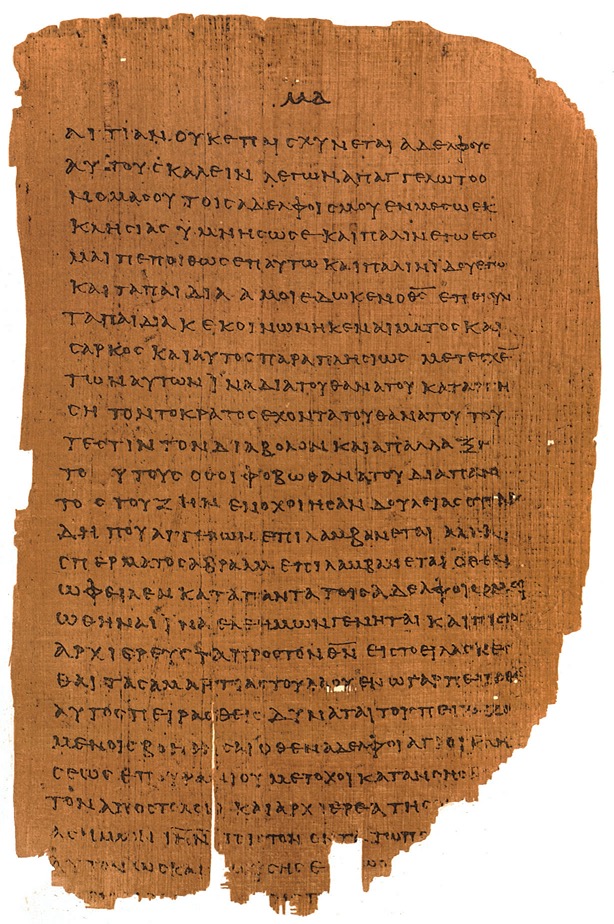 ΜΑ
ΑΙΤΙΑΝΟΥΚΕΠΑΙϹΧΥΝΕΤΑΙΑΔΕΛΦΟΥϹ
ΑΥΤΟΥϹΚΑΛΕΙΝΛΕΓΩΝΑΠΑΓΓΕΛΩΤΟΟ
ΝΟΜΑϹΟΥΤΟΙϹΑΔΕΛΦΟΙϹΜΟΥΕΝΜΕϹΩΕΚ
ΚΛΗϹΙΑϹΥΜΝΗϹΩϹΕΚΑΙΠΑΛΙΝΕΓΩΕϹΟ
ΜΑΙΠΕΠΟΙΘΩϹΕΠΑΥΤΩΚΑΙΠΑΛΙΝΪΔΟΥΕΓΩ
ΚΑΙΤΑΠΑΙΔΙΑΑΜΟΙΕΔΩΚΕΝΟΘ̅Ϲ̅ΕΠΕΙΟΥΝ
ΤΑΠΑΙΔΙΑΚΕΚΟΙΝΩΝΗΚΕΝΑΙΜΑΤΟϹΚΑΙ
ϹΑΡΚΟϹΚΑΙΑΥΤΟϹΠΑΡΑΠΛΗϹΙΩϹΜΕΤΕϹΧΕ̅
ΤΩΝΑΥΤΩΝΪΝΑΔΙΑΤΟΥΘΑΝΑΤΟΥΚΑΤΑΡΓΗ
ϹΗΤΟΝΤΟΚΡΑΤΟϹΕΧΟΝΤΑΤΟΥΘΑΝΑΤΟΥΤΟΥ
ΤΕϹΤΙΝΤΟΝΔΙΑΒΟΛΟΝΚΑΙΑΠΑΛΛΑΞΗ
ΤΟΥΤΟΥϹΟϹΟΙΦΟΒΩΘΑΝΑΤΟΥΔΙΑΠΑΝΤΟ
ΤΟϹΤΟΥΖΗΝΕΝΟΧΟΙΗϹΑΝΔΟΥΛΕΙΑϹΟΥΓΑΡ
ΔΗΠΟΥΑΓΓΕΛΩΝΕΠΙΛΑΜΒΑΝΕΤΑΙΑΛΛΑ
ϹΠΕΡΜΑΤΟϹΑΒΡΑΑΜΕΠΙΛΑΜΒΑΝΕΤΑΙΟΘΕΝ
ΩΦΕΙΛΕΝΚΑΤΑΠΑΝΤΑΤΟΙϹΑΔΕΛΦΟΙϹΟΜΟΙ
ΩΘΗΝΑΙΪΝΑΕΛΕΗΜΩΝΓΕΝΗΤΑΙΚΑΙΠΙϹΤΟϹ
ΑΡΧΙΕΡΕΥϹΤΑΠΡΟϹΤΟΝΘ̅Ν̅ΕΙϹΤΟΕΙΛΑϹΚΕϹ
ΘΑΙΤΑϹΑΜΑΡΤΙΑϹΤΟΥΛΑΟΥΕΝΩΓΑΡΠΕΠΟΝΘΕΝ
ΑΥΤΟϹΠΕΙΡΑϹΘΕΙϹΔΥΝΑΤΑΙΤΟΙϹΠΕΙΡΑΖΟ
ΜΕΝΟΙϹΒΟΗΘΗϹΑΙΟΘΕΝΑΔΕΛΦΟΙΑΓΙΟΙΚΛΗ
ϹΕΩϹΕΠΟΥΡΑΝΙΟΥΜΕΤΟΧΟΙΚΑΤΑΝΟΗϹ
ΤΟΝΑΠΟϹΤΟΛΟΝΚΑΙΑΡΧΙΕΡΕΑΤΗϹ
ΙΗ̅Ν̅ΠΙϹΤΟΝ
ΑΥΤΟΝΩϹΚΑΙΜΩΥϹΗϹΕ